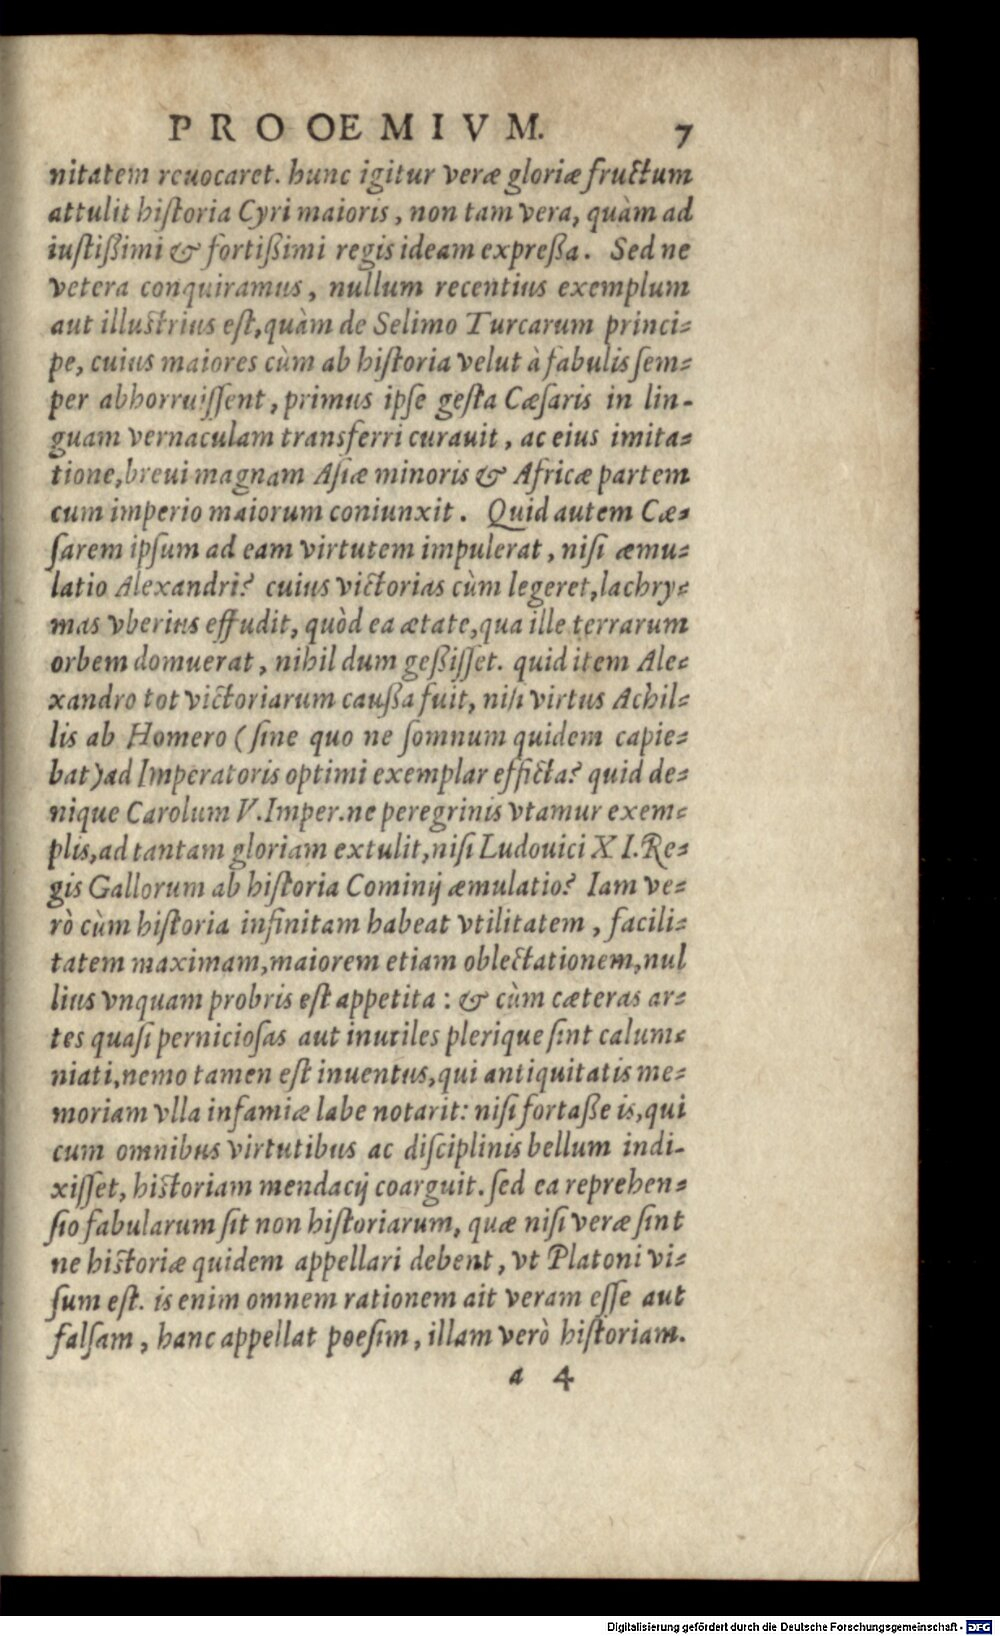 PROOEMIVM. 7
nitatem reuocaret. hunc igitur veræ gloriæ fructum
attulit hiſtoria Cyri maioris, non tam vera, quàm ad
iuſtißimi & fortißimi regis ideam expreßa. Sed ne
vetera conquiramus, nullum recentius exemplum
aut illuſtrius eſt, quàm de Selimo Turcarum princi-
pe, cuius maiores cùm ab hiſtoria velut à fabulis ſem-
per abhorruiſſent, primus ipſe geſta Cæſaris in lin-
guam vernaculam transferri curauit, ac eius imita-
tione, breui magnam Aſiæ minoris & Africæ partem
cum imperio maiorum coniunxit. Quid autem Cæ-
ſarem ipſum ad eam virtutem impulerat, niſi æmu-
latio Alexandri? cuius victorias cùm legeret, lachry-
mas vberius effudit, quòd ea ætate, qua ille terrarum
orbem domuerat, nihil dum geßiſſet. quid item Ale-
xandro tot victoriarum caußa fuit, niſi virtus Achil-
lis ab Homero (ſine quo ne ſomnum quidem capie-
bat) ad Imperatoris optimi exemplar efficta? quid de-
nique Carolum V. Imper. ne peregrinis vtamur exem-
plis, ad tantam gloriam extulit, niſi Ludouici XI. Re-
gis Gallorum ab hiſtoria Cominij æmulatio? Iam ve-
rò cùm hiſtoria infinitam habeat vtilitatem, facili-
tatem maximam, maiorem etiam oblectationem, nul
lius vnquam probris eſt appetita: & cùm cæteras ar-
tes quaſi pernicioſas aut inutiles plerique ſint calum-
niati, nemo tamen eſt inuentus, qui antiquitatis me-
moriam vlla infamiæ labe notarit: niſi fortaße is, qui
cum omnibus virtutibus ac diſciplinis bellum indi-
xiſſet, hiſtoriam mendacij coarguit. ſed ea reprehen-
ſio fabularum ſit non hiſtoriarum, quæ niſi veræ ſint
ne hiſtoriæ quidem appellari debent, vt Platoni vi-
ſum eſt. is enim omnem rationem ait veram eſſe aut
falſam, hanc appellat poeſim, illam verò hiſtoriam.
a 4
Digitalisierung gefördert durch die Deutsche Forschungsgemeinschaft - DFG